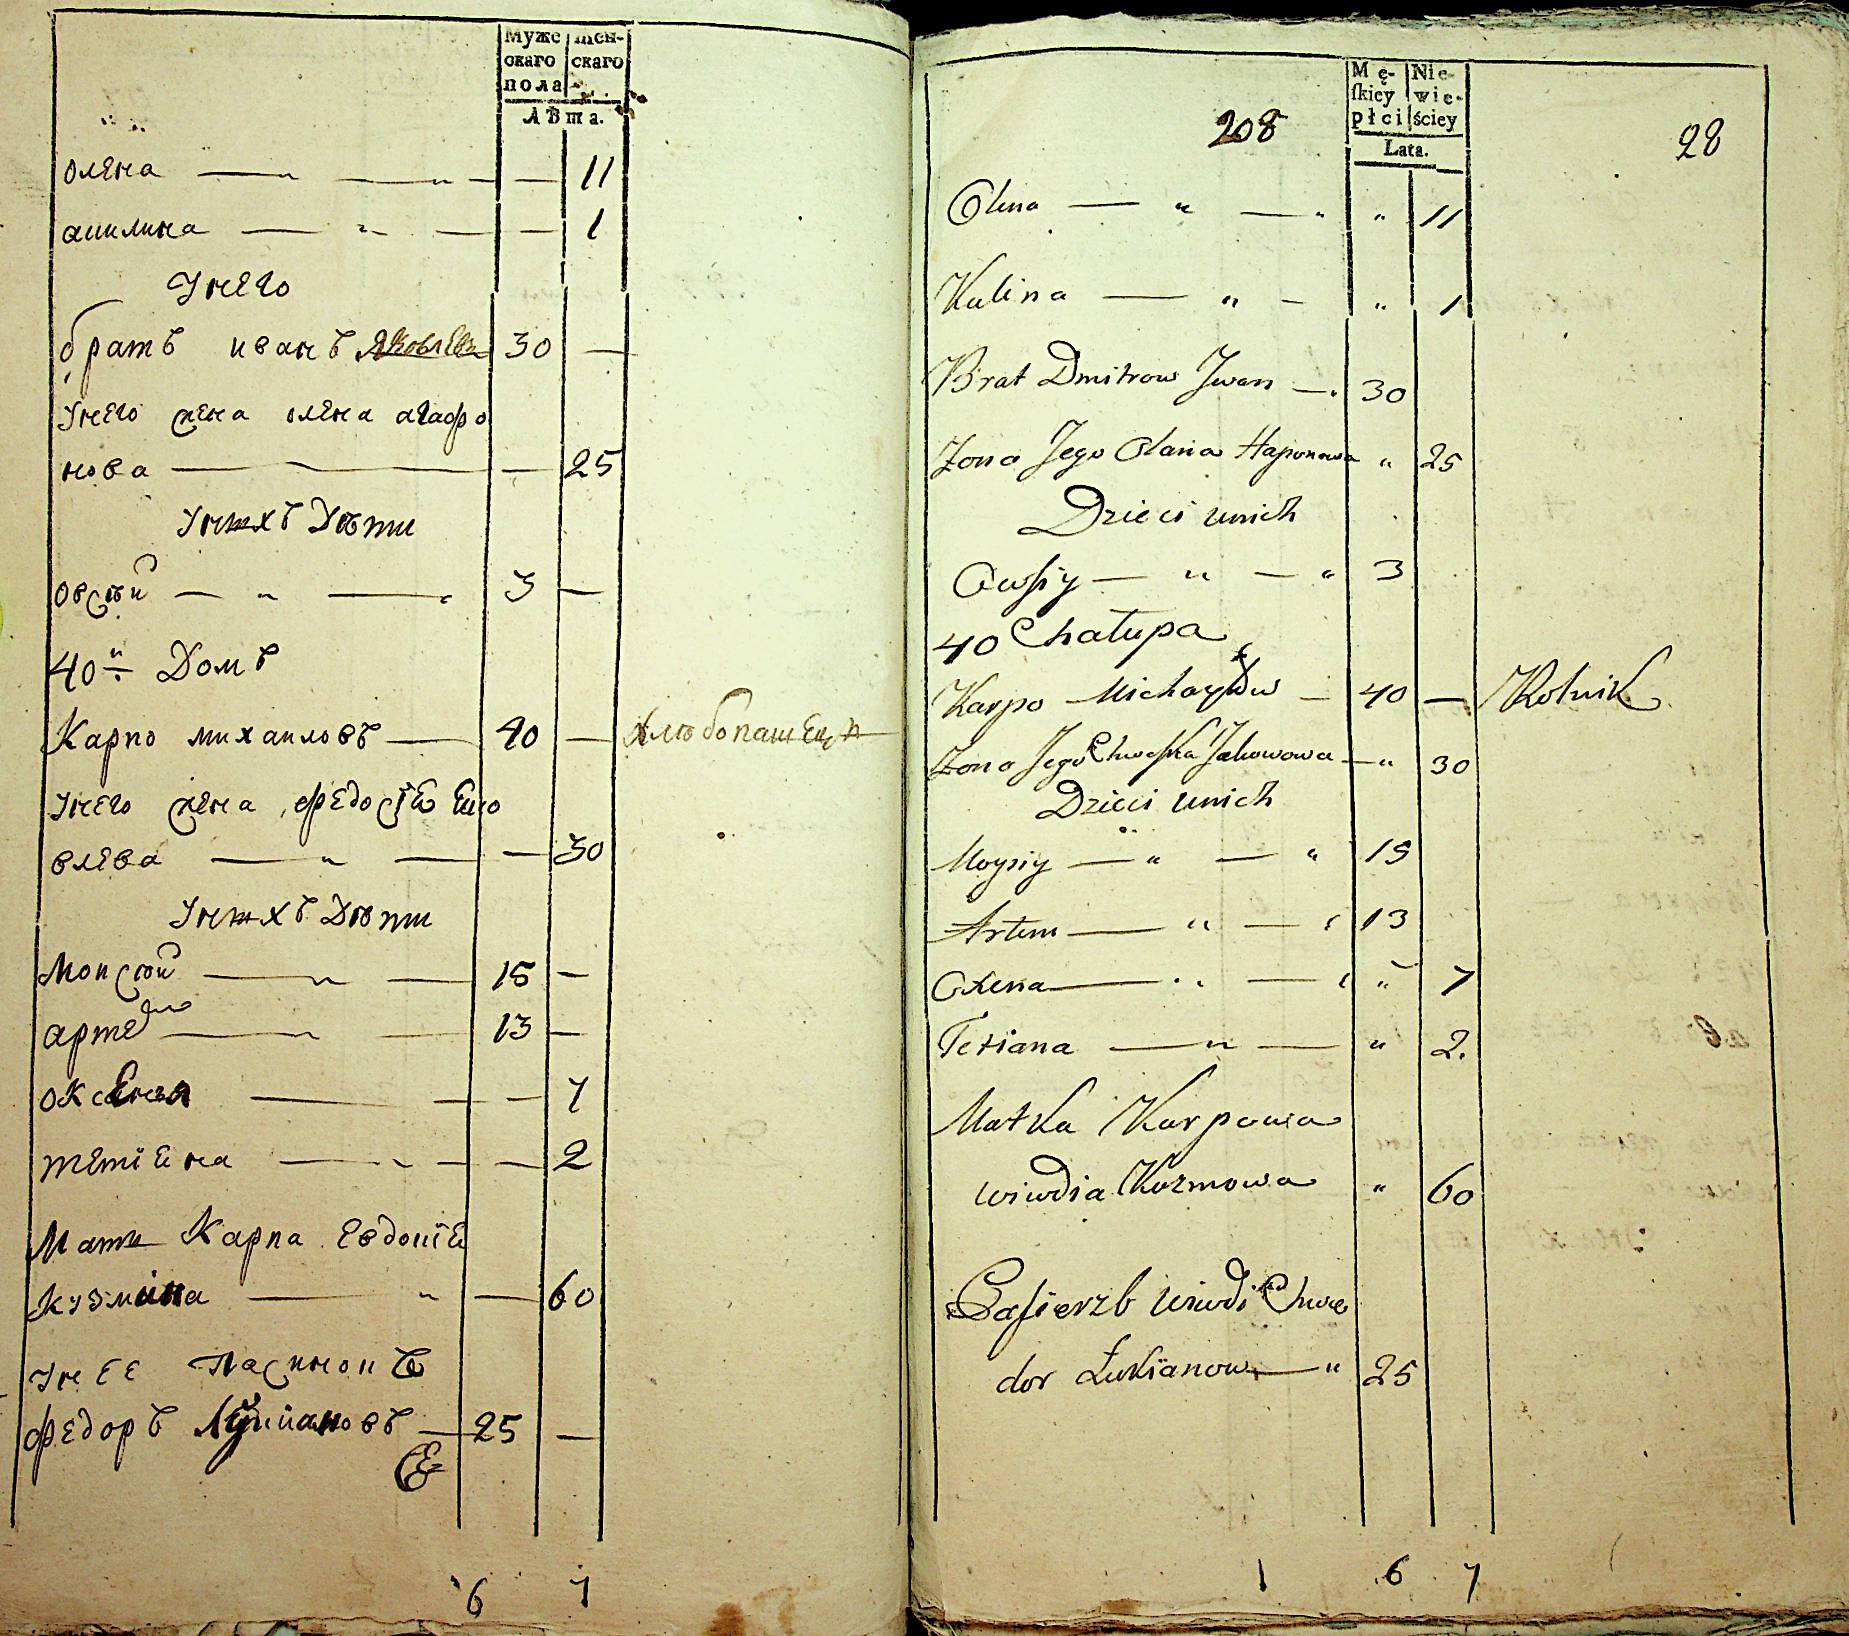 Муже
скаго
пола
жен-
скаго
Лѣта.
олена 11
акилина 1
У него
братъ иванъ яковлевъ 30 —
У него жена олена агафо
нова — 25
У нихъ Дѣти
овсѣй 3 —
40й Домъ
Карпо михаиловъ 40 — хлѣбопашецъ
У него жена федосїя яко
влева — 30
У нихъ Дѣти
Моисѣй 15 —
артем 13 —
оксения — 7
тетїяна — 2
Мати Карпа Евдокїя
кузмина — 60
У нее пасинокъ
федоръ Лукияновъ 25 —
6 7
208
28
Mę-
skiey
płci
Nie-
wie-
ściey
Lata.
Olena " 11
Kulina " 1
Brat Dmitrow Jwan 30
Zona Jego Olana Haponowa " 25
Dzieci unich
Owsiy 3
40 Chałupa
Karpo Michayłow 40 — Rolnik
Zona Jego Chweska Jakowowa " 30
Dzieci unich
Moysiy 15
Artem 13
Oxena " 7
Tetiana " 2.
Matka Karpowa
wiwdia Kozmowa " 60
Pasierzb wiwdi Chwe
dor Łukianow " 25
1 6 7